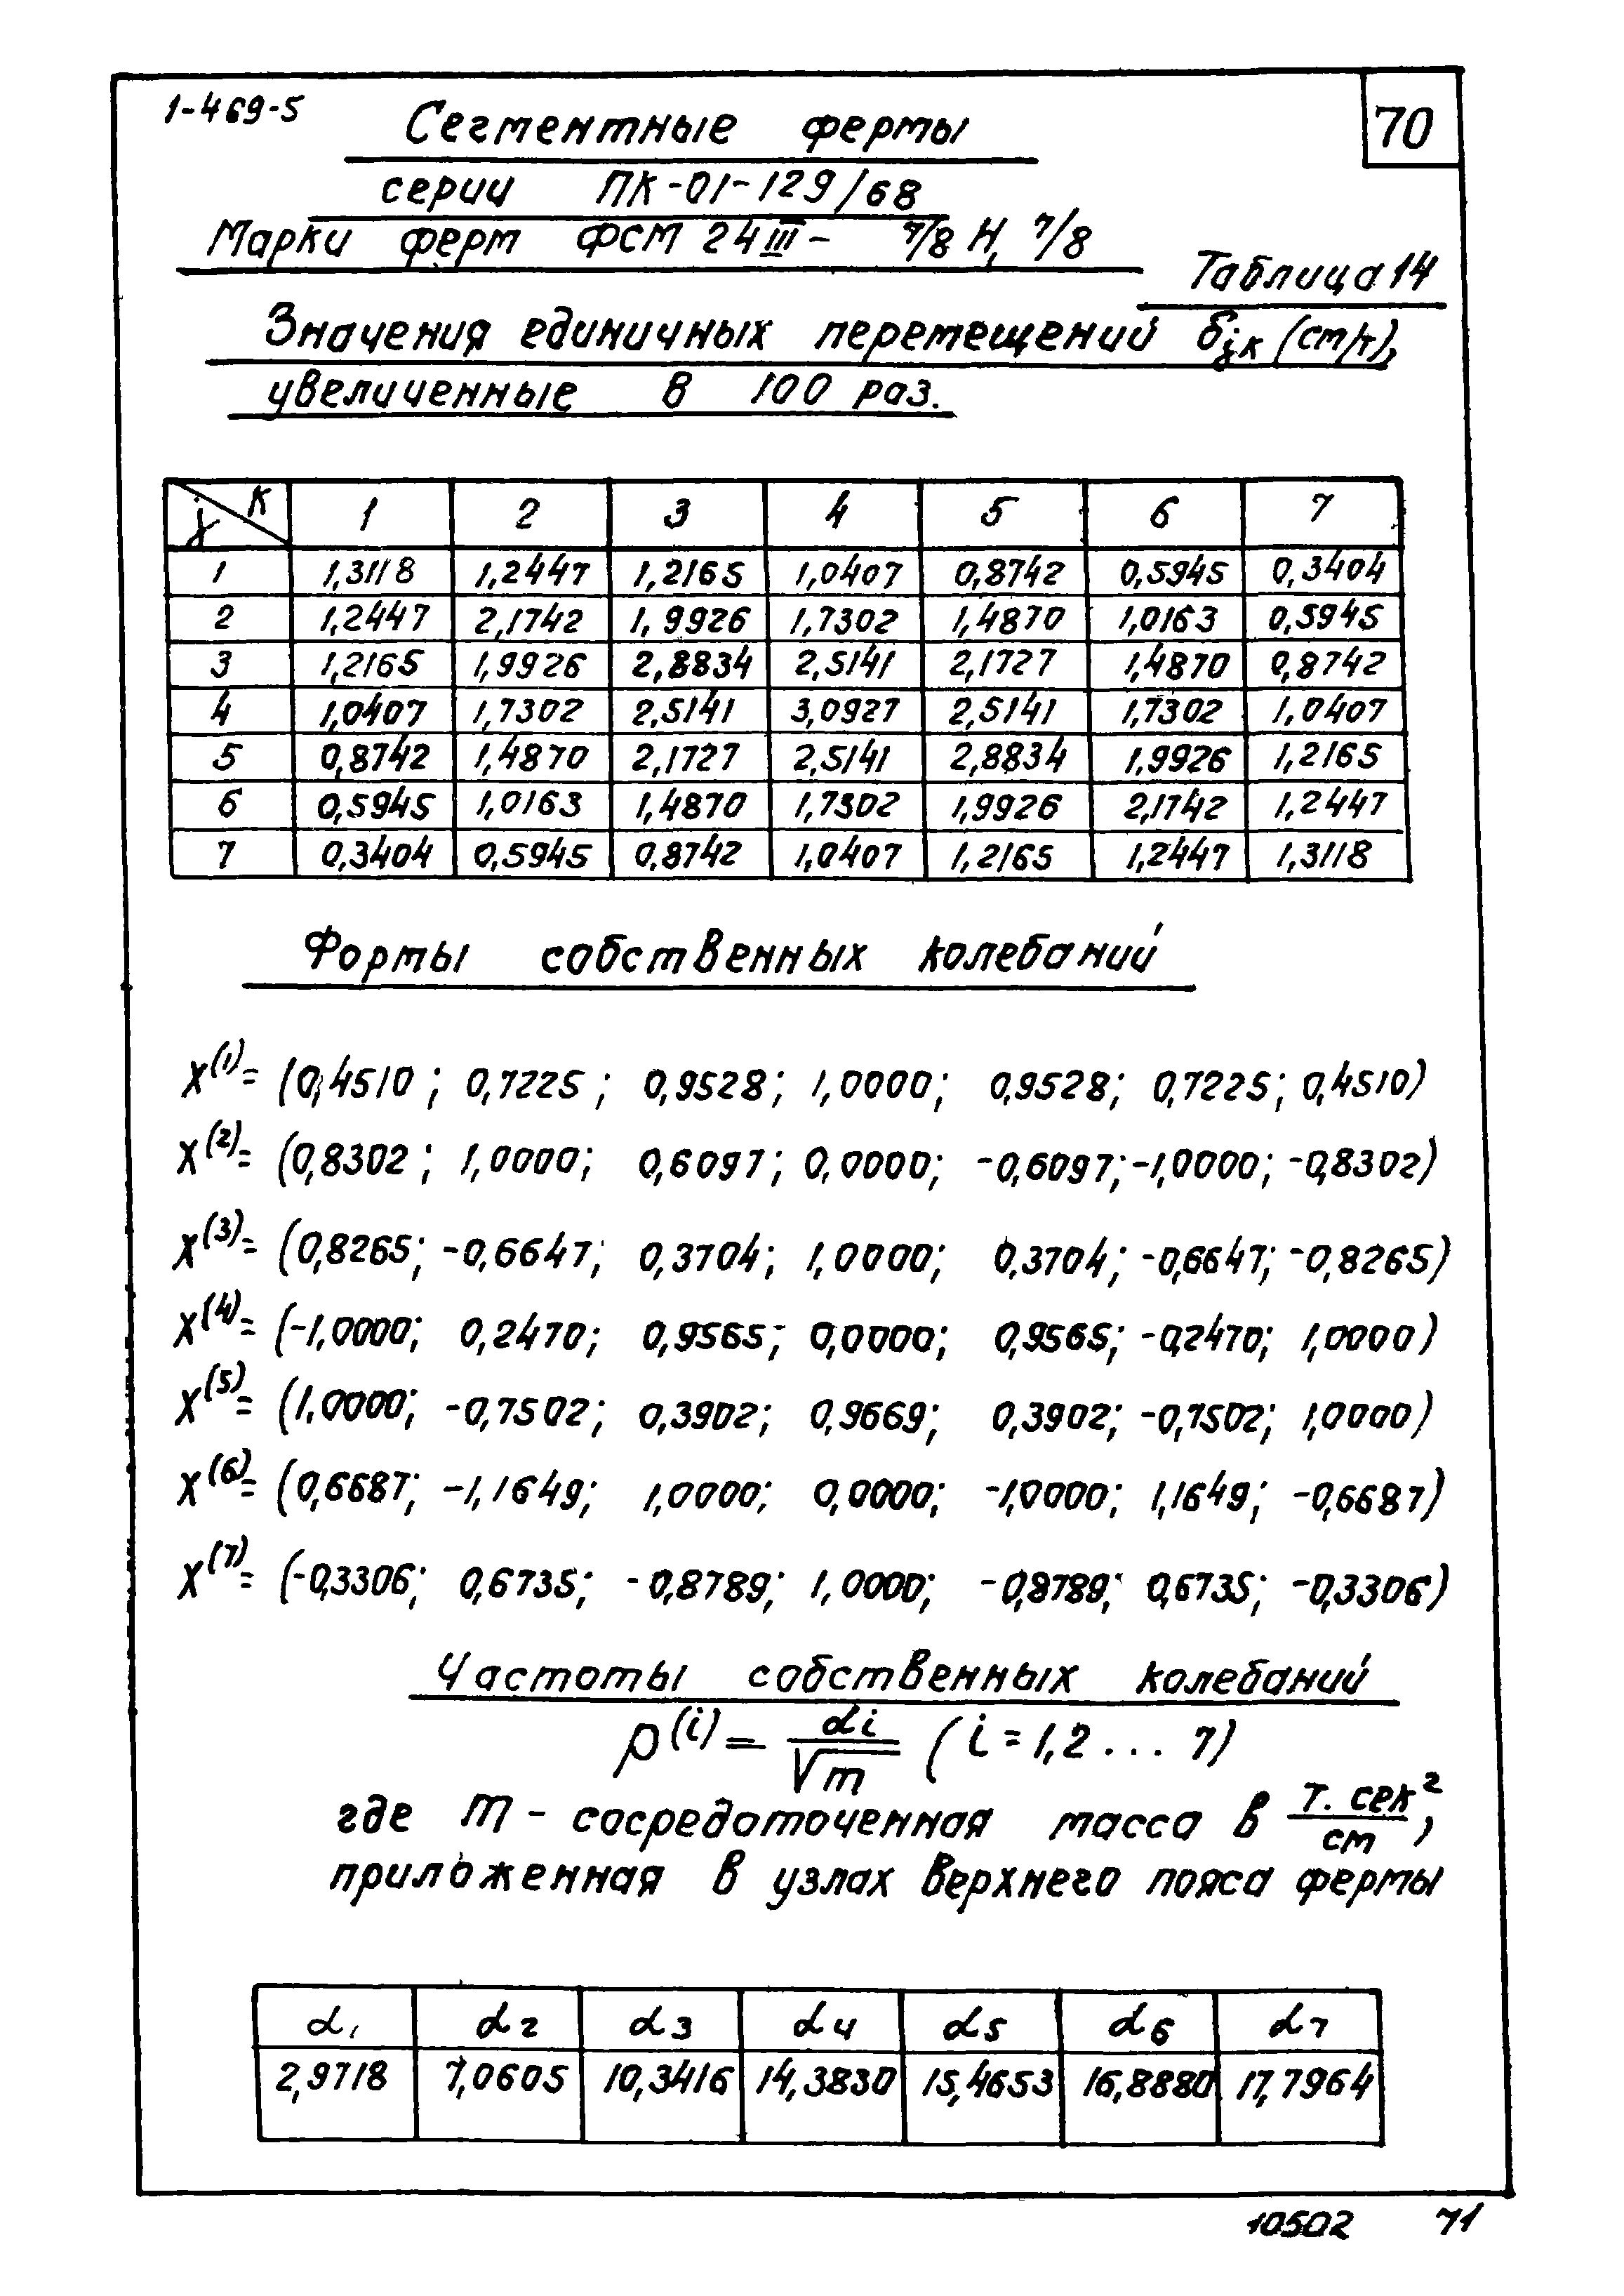 1-469-5
70
Сегментные фермы
серии ПК-01-129/68
Марки ферм ФСМ 24 III - 7/8 Н, 7/8
Таблица 14
Значения единичных перемещений δjк (см/т),
увеличенные в 100 раз.
j к 1 2 3 4 5 6 7
1 1,3118 1,2447 1,2165 1,0407 0,8742 0,5945 0,3404
2 1,2447 2,1742 1,9926 1,7302 1,4870 1,0163 0,5945
3 1,2165 1,9926 2,8834 2,5141 2,1727 1,4870 0,8742
4 1,0407 1,7302 2,5141 3,0927 2,5141 1,7302 1,0407
5 0,8742 1,4870 2,1727 2,5141 2,8834 1,9926 1,2165
6 0,5945 1,0163 1,4870 1,7302 1,9926 2,1742 1,2447
7 0,3404 0,5945 0,8742 1,0407 1,2165 1,2447 1,3118
Формы собственных колебаний
X(1)= (0,4510; 0,7225; 0,9528; 1,0000; 0,9528; 0,7225; 0,4510)
X(2)= (0,8302; 1,0000; 0,6097; 0,0000; -0,6097; -1,0000; -0,8302)
X(3)= (0,8265; -0,6647; 0,3704; 1,0000; 0,3704; -0,6647; -0,8265)
X(4)= (-1,0000; 0,2470; 0,9565; 0,0000; 0,9565; -0,2470; 1,0000)
X(5)= (1,0000; -0,7502; 0,3902; 0,9669; 0,3902; -0,7502; 1,0000)
X(6)= (0,6687; -1,1649; 1,0000; 0,0000; -1,0000; 1,1649; -0,6687)
X(7)= (-0,3306; 0,6735; -0,8789; 1,0000; -0,8789; 0,6735; -0,3306)
Частоты собственных колебаний
p(i) = αi / √m (i = 1,2 ... 7)
где m - сосредоточенная масса в т. сек²/см,
приложенная в узлах верхнего пояса фермы
α1 α2 α3 α4 α5 α6 α7
2,9718 7,0605 10,3416 14,3830 15,4653 16,8880 17,7964
10502 71